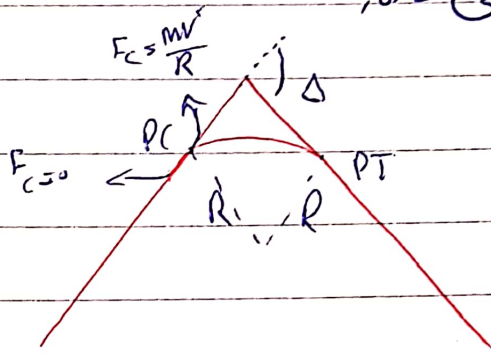 Fc = mv²/R
Δ
PC
PT
Fc=0
R R